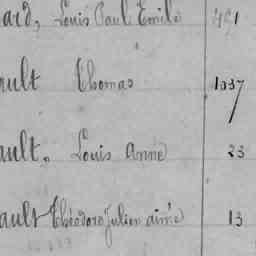 ard, Louis Paul Emile 421
ault Thomas 1037
ault, Louis Anne 23
ault Théodore Julien aimé 13